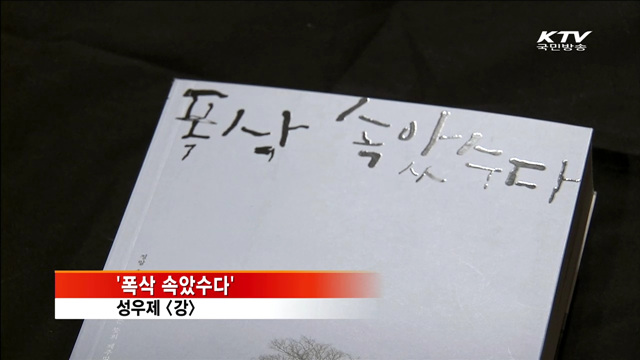 KTV
국민방송
폭삭 속았수다
'폭삭 속았수다'
성우제 〈강〉